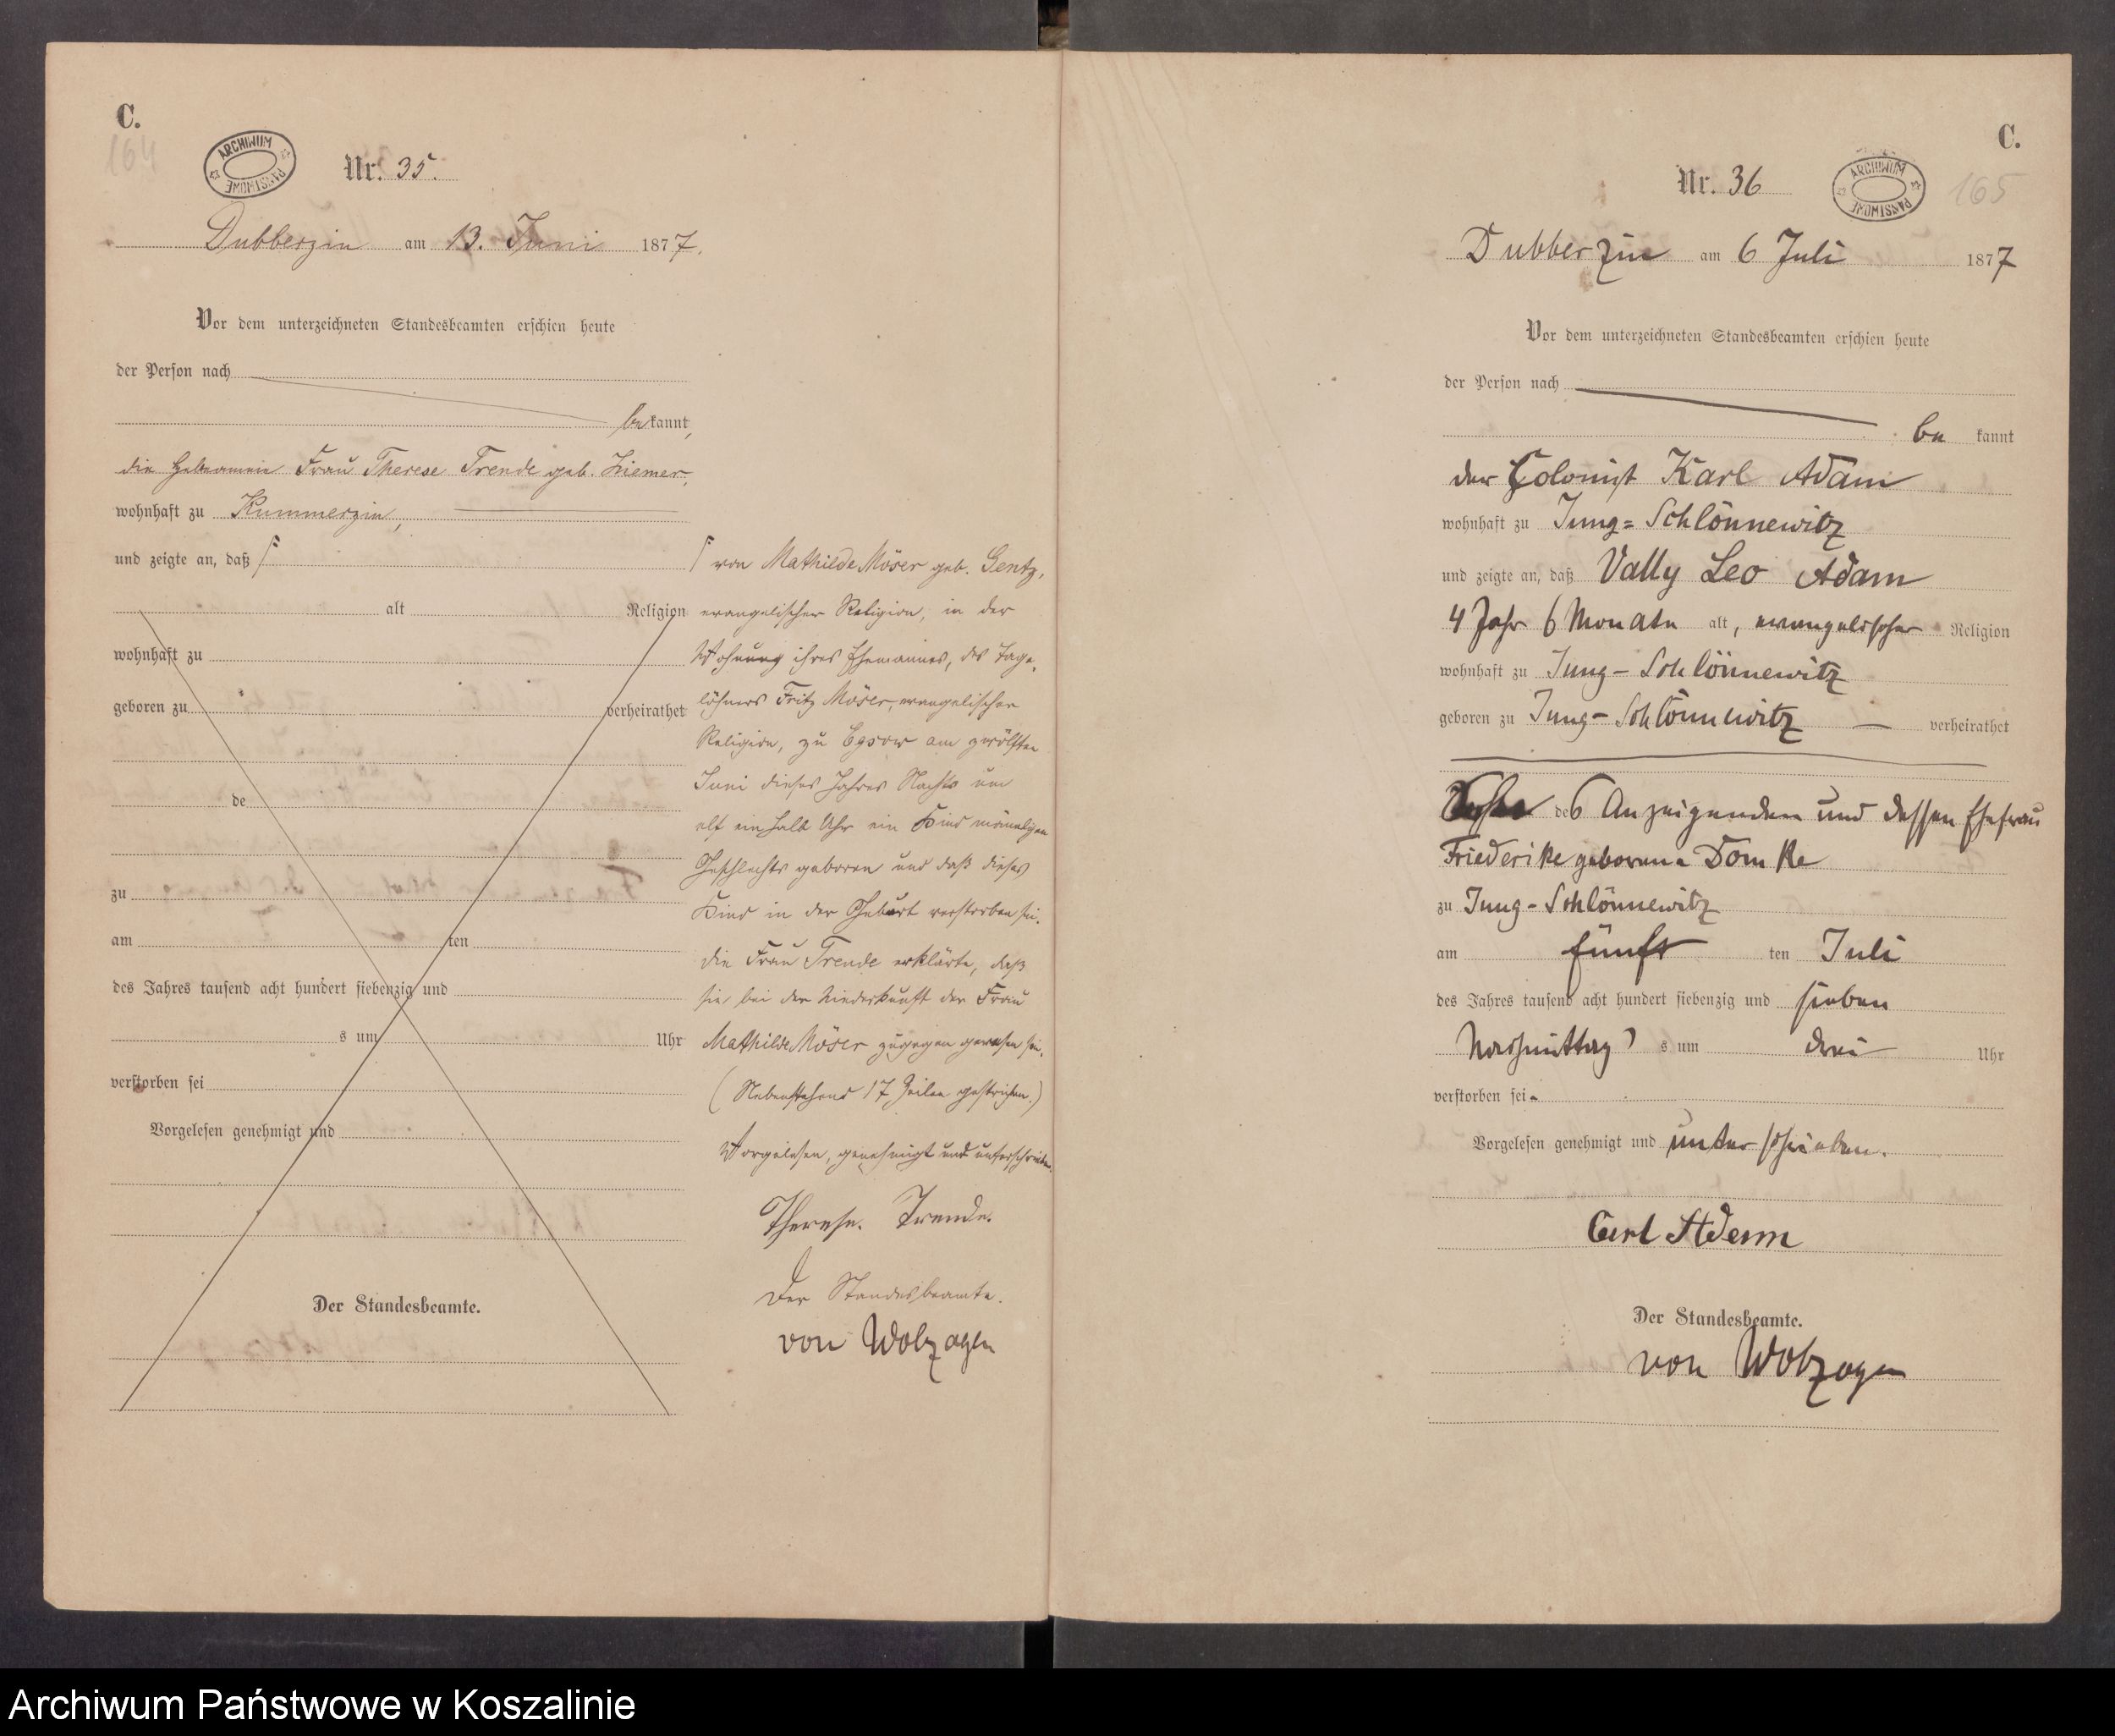 C.
164
ARCHIWUM PAŃSTWOWE
Nr. 35.
Dubberzin am 13. Juni 1877.
Vor dem unterzeichneten Standesbeamten erschien heute
der Person nach
bekannt,
die Hebamme Frau Therese Trende geb. Ziemer,
wohnhaft zu Kummerzin,
und zeigte an, daß
alt Religion
wohnhaft zu
geboren zu verheirathet
de
zu
am ten
des Jahres tausend acht hundert siebenzig und
s um Uhr
verstorben sei
Vorgelesen genehmigt und
Der Standesbeamte.
von Mathilde Möser geb. Gentz,
evangelischer Religion, in der
Wohnung ihres Ehemannes, des Tage-
löhners Fritz Möser, evangelischer
Religion, zu Egsow am zwölften
Juni dieses Jahres Nachts um
elf ein halb Uhr ein Kind männlichen
Geschlechts geboren und daß dieses
Kind in der Geburt verstorben sei.
die Frau Trende erklärte, daß
sie bei der Niederkunft der Frau
Mathilde Möser zugegen gewesen sei.
(Nebenstehend 17 Zeilen gestrichen.)
Vorgelesen, genehmigt und unterschrieben.
Therese. Trende.
Der Standesbeamte.
von Wolzogen
C.
Nr. 36
ARCHIWUM PAŃSTWOWE
165
Dubberzin am 6 Juli 1877
Vor dem unterzeichneten Standesbeamten erschien heute
der Person nach
be kannt
der Colonist Karl Adam
wohnhaft zu Jung=Schlönnewitz
und zeigte an, daß Vally Leo Adam
4 Jahr 6 Monate alt, evangelischer Religion
wohnhaft zu Jung-Schlönnewitz
geboren zu Jung-Schlönnewitz — verheirathet
des Anzeigenden und dessen Ehefrau
Friederike geborene Domke
zu Jung-Schlönnewitz
am fünf ten Juli
des Jahres tausend acht hundert siebenzig und sieben
Nachmittag s um drei Uhr
verstorben sei.
Vorgelesen genehmigt und unterschrieben.
Carl Adam
Der Standesbeamte.
von Wolzogen
Archiwum Państwowe w Koszalinie